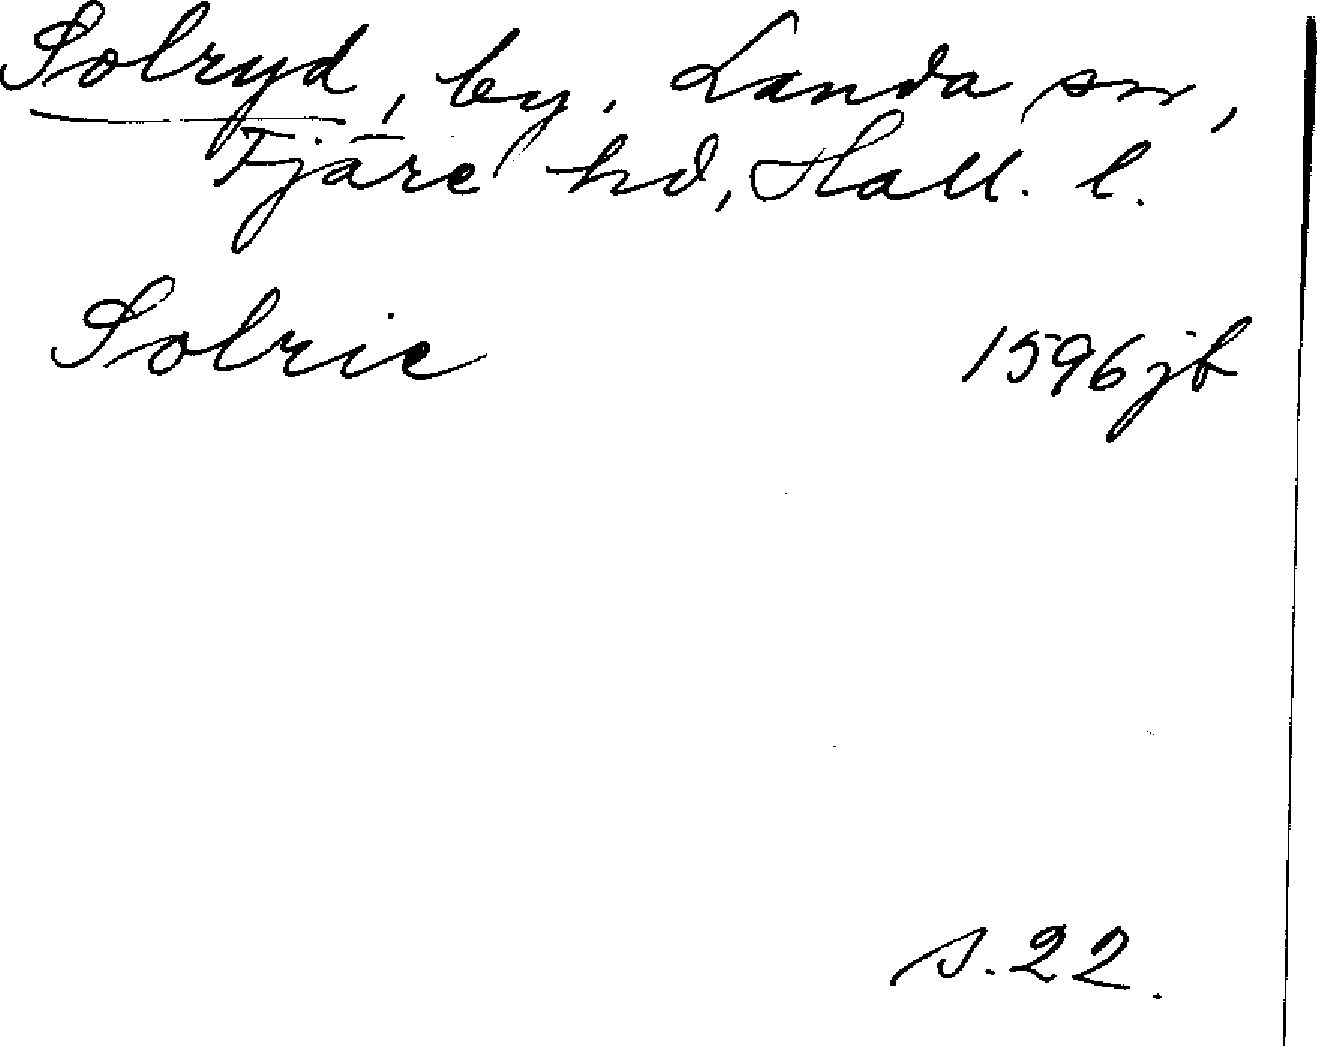 Solryd, by, Landa sn,
Fjäre hd, Hall. l.
Solrie 1596 jb
s. 22.